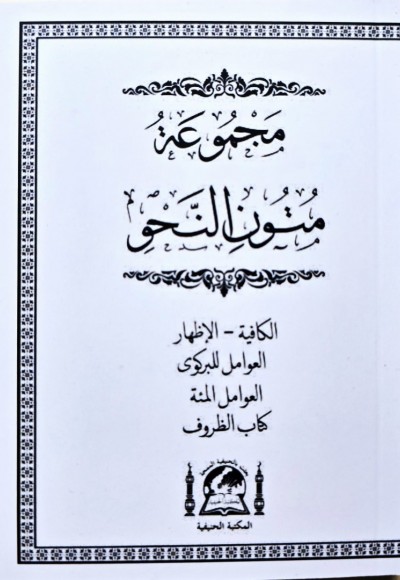 مَجْمُوعَةُ
مُتُونِ النَّحْوِ
الكافية - الإظهار
العوامل للبركوى
العوامل المئة
كتاب الظروف
المكتبة الحنيفية